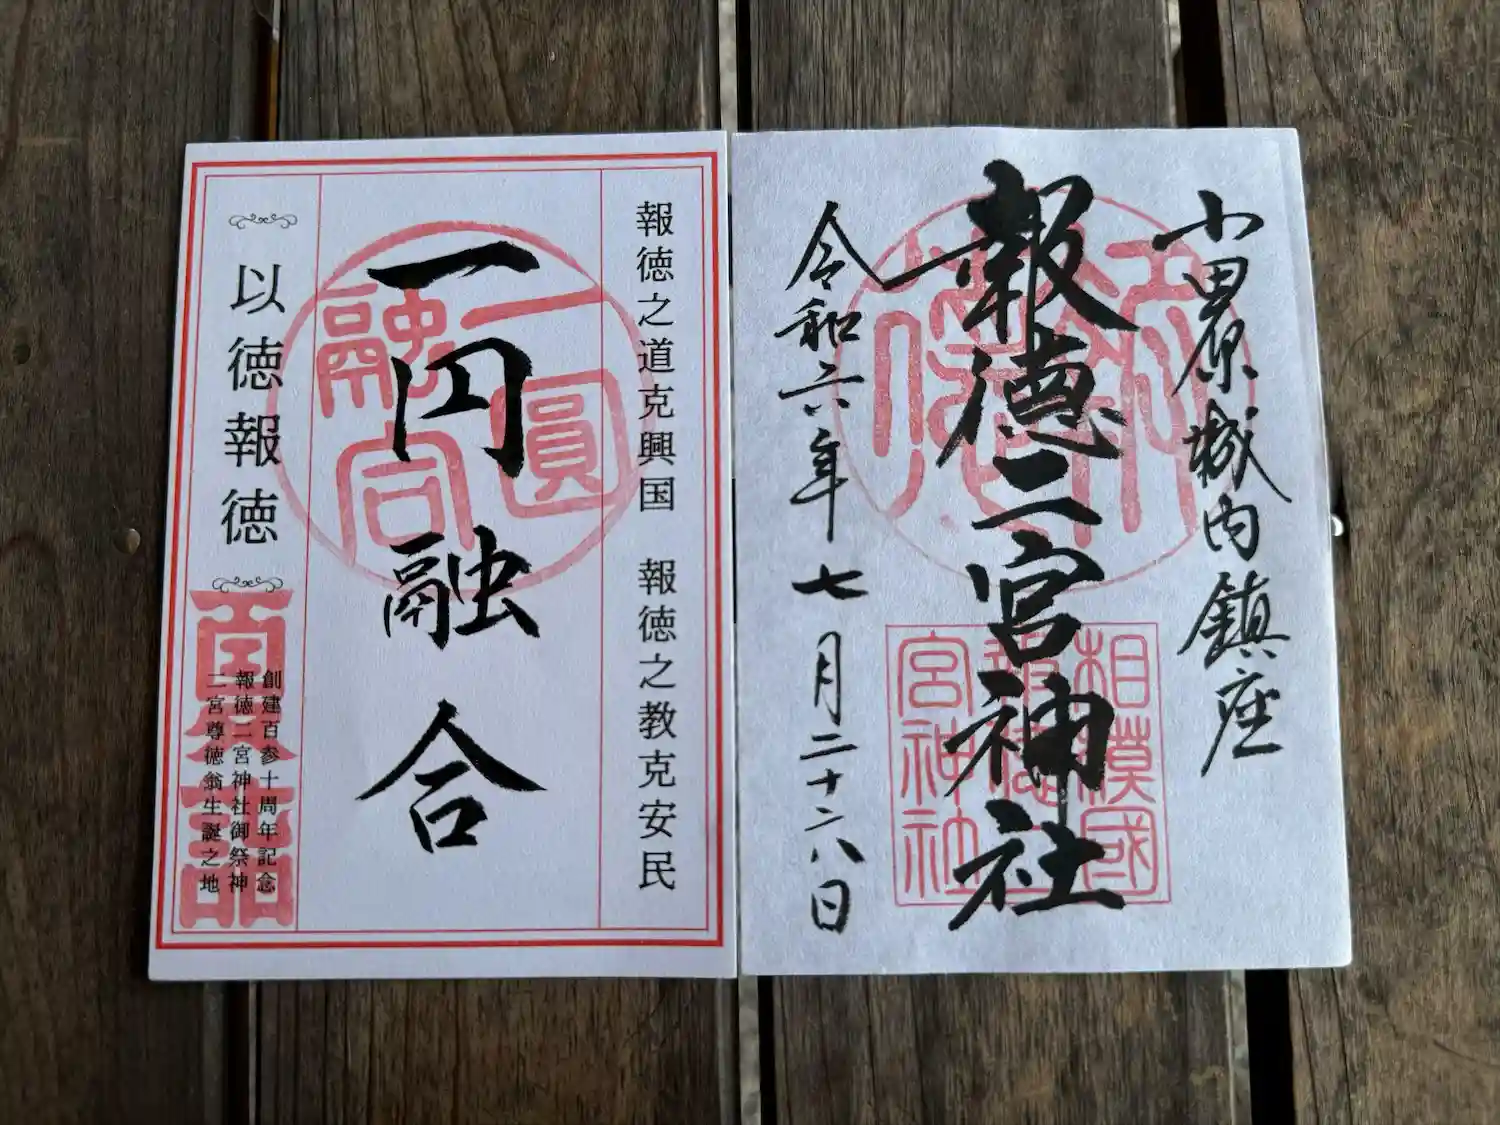 小田原城内鎮座
報徳二宮神社
令和六年七月二十八日
相模國
報徳二
宮神社
報徳之道克興国 報徳之教克安民
一円融合
一圓
融合
以徳報徳
創建百参十周年記念
報徳二宮神社御祭神
二宮尊徳翁生誕之地